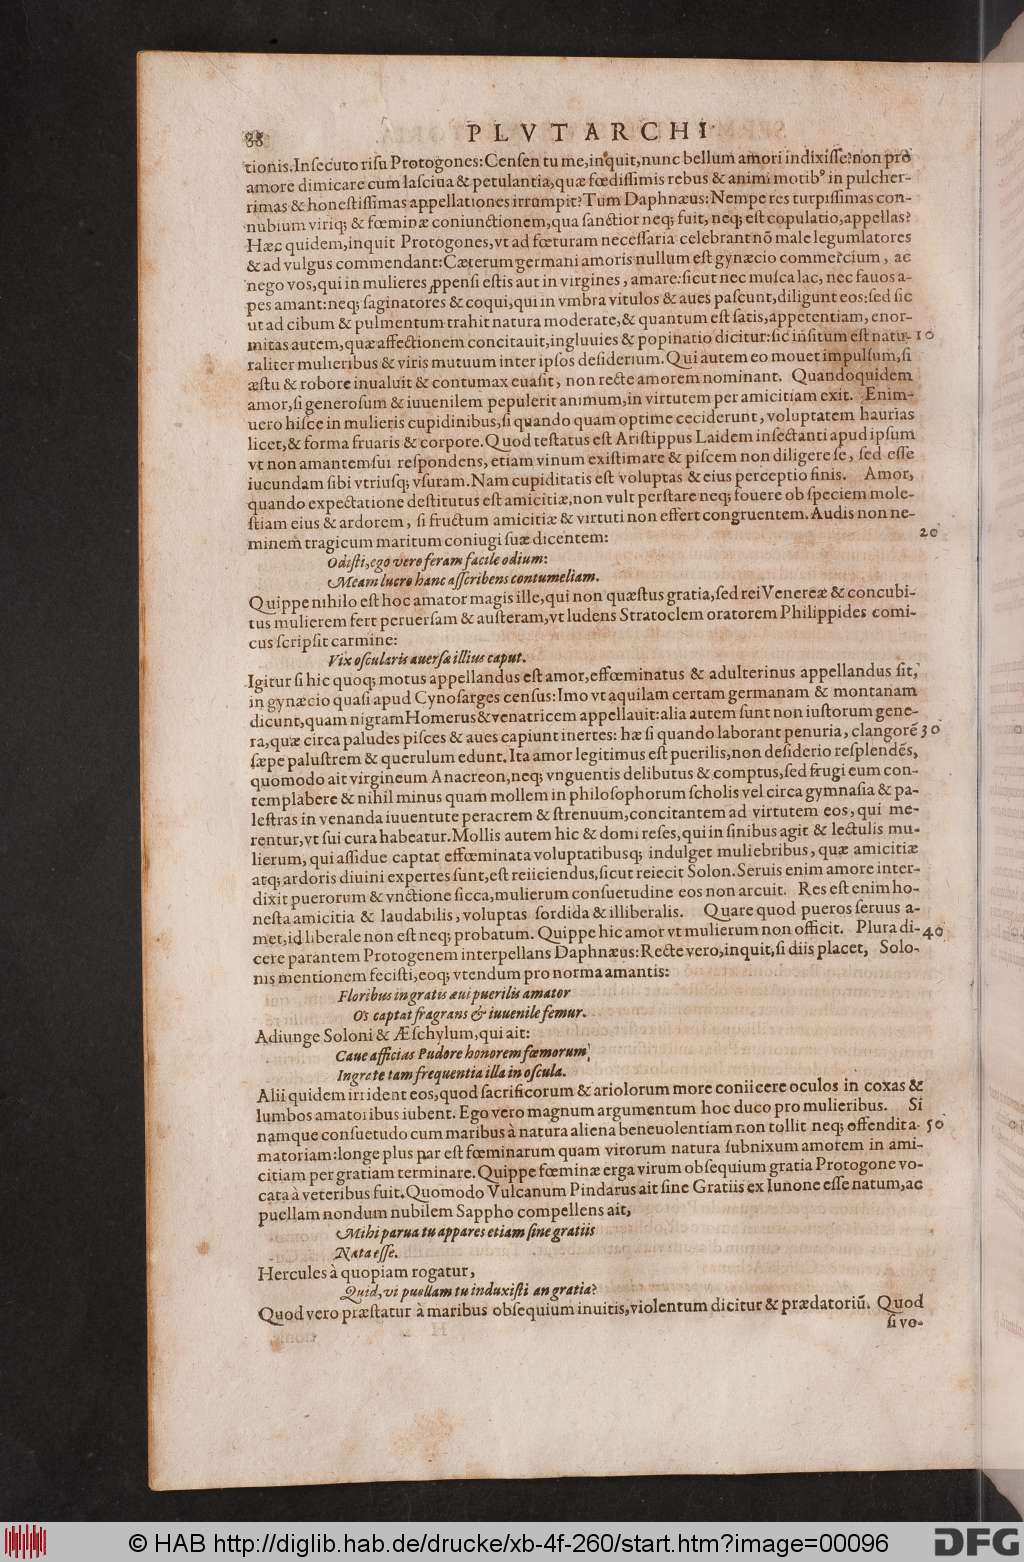 88 PLVTARCHI
tionis. Insecuto risu Protogones: Censen tu me, inquit, nunc bellum amori indixisse? non pro
amore dimicare cum lasciua & petulantia, quæ fœdissimis rebus & animi motibꝰ in pulcher-
rimas & honestissimas appellationes irrumpit? Tum Daphnæus: Nempe res turpissimas con-
nubium viriq; & fœminæ coniunctionem, qua sanctior neq; fuit, neq; est copulatio, appellas?
Hæc quidem, inquit Protogones, vt ad fœturam necessaria celebrant nõ male legumlatores
& ad vulgus commendant: Cæterum germani amoris nullum est gynæcio commercium, ac
nego vos, qui in mulieres ꝓpensi estis aut in virgines, amare: sicut nec musca lac, nec fauos a-
pes amant: neq; saginatores & coqui, qui in vmbra vitulos & aues pascunt, diligunt eos: sed sic
ut ad cibum & pulmentum trahit natura moderate, & quantum est satis, appetentiam, enor-
mitas autem, quæ affectionem concitauit, ingluuies & popinatio dicitur: sic insitum est natu- 10
raliter mulieribus & viris mutuum inter ipsos desiderium. Qui autem eo mouet impulsum, si
æstu & robore inualuit & contumax euasit, non recte amorem nominant. Quandoquidem
amor, si generosum & iuuenilem pepulerit animum, in virtutem per amicitiam exit. Enim-
uero hisce in mulieris cupidinibus, si quando quam optime ceciderunt, voluptatem haurias
licet, & forma fruaris & corpore. Quod testatus est Aristippus Laidem insectanti apud ipsum
vt non amantem sui respondens, etiam vinum existimare & piscem non diligere se, sed esse
iucundam sibi vtriusq; vsuram. Nam cupiditatis est voluptas & eius perceptio finis. Amor,
quando expectatione destitutus est amicitiæ, non vult perstare neq; fouere ob speciem mole-
stiam eius & ardorem, si fructum amicitiæ & virtuti non effert congruentem. Audis non ne-
minem tragicum maritum coniugi suæ dicentem: 20
Odisti, ego vero feram facile odium:
Meam lucro hanc asscribens contumeliam.
Quippe nihilo est hoc amator magis ille, qui non quæstus gratia, sed rei Venereæ & concubi-
tus mulierem fert peruersam & austeram, vt ludens Stratoclem oratorem Philippides comi-
cus scripsit carmine:
Vix oscularis auersæ illius caput.
Igitur si hic quoq; motus appellandus est amor, effœminatus & adulterinus appellandus sit,
in gynæcio quasi apud Cynosarges census: Imo vt aquilam certam germanam & montanam
dicunt, quam nigram Homerus & venatricem appellauit: alia autem sunt non iustorum gene-
ra, quæ circa paludes pisces & aues capiunt inertes: hæ si quando laborant penuria, clangorẽ 30
sæpe palustrem & querulum edunt. Ita amor legitimus est puerilis, non desiderio resplendẽs,
quomodo ait virgineum Anacreon, neq; vnguentis delibutus & comptus, sed frugi eum con-
templabere & nihil minus quam mollem in philosophorum scholis vel circa gymnasia & pa-
lestras in venanda iuuentute peracrem & strenuum, concitantem ad virtutem eos, qui me-
rentur, vt sui cura habeatur. Mollis autem hic & domi reses, qui in sinibus agit & lectulis mu-
lierum, qui assidue captat effœminata voluptatibusq; indulget muliebribus, quæ amicitiæ
atq; ardoris diuini expertes sunt, est reiiciendus, sicut reiecit Solon. Seruis enim amore inter-
dixit puerorum & vnctione sicca, mulierum consuetudine eos non arcuit. Res est enim ho-
nesta amicitia & laudabilis, voluptas sordida & illiberalis. Quare quod pueros seruus a-
met, id liberale non est neq; probatum. Quippe hic amor vt mulierum non officit. Plura di- 40
cere parantem Protogenem interpellans Daphnæus: Recte vero, inquit, si diis placet, Solo-
nis mentionem fecisti, eoq; vtendum pro norma amantis:
Floribus in gratis æui puerilis amator
Os captat fragrans & iuuenile femur.
Adiunge Soloni & Æschylum, qui ait:
Caue afficias Pudore honorem fœmorum,
Ingrate tam frequentia illa in oscula.
Alii quidem irrident eos, quod sacrificorum & ariolorum more coniicere oculos in coxas &
lumbos amatoribus iubent. Ego vero magnum argumentum hoc duco pro mulieribus. Si
namque consuetudo cum maribus à natura aliena beneuolentiam non tollit neq; offendit a- 50
matoriam: longe plus par est fœminarum quam virorum natura subnixum amorem in ami-
citiam per gratiam terminare. Quippe fœminæ erga virum obsequium gratia Protogone vo-
cata à veteribus fuit. Quomodo Vulcanum Pindarus ait sine Gratiis ex Iunone esse natum, ac
puellam nondum nubilem Sappho compellens ait,
Mihi parua tu appares etiam sine gratiis
Nata esse.
Hercules à quopiam rogatur,
Quid, vi puellam tu induxisti an gratia?
Quod vero præstatur à maribus obsequium inuitis, violentum dicitur & prædatoriũ. Quod
si vo-
© HAB http://diglib.hab.de/drucke/xb-4f-260/start.htm?image=00096
DFG